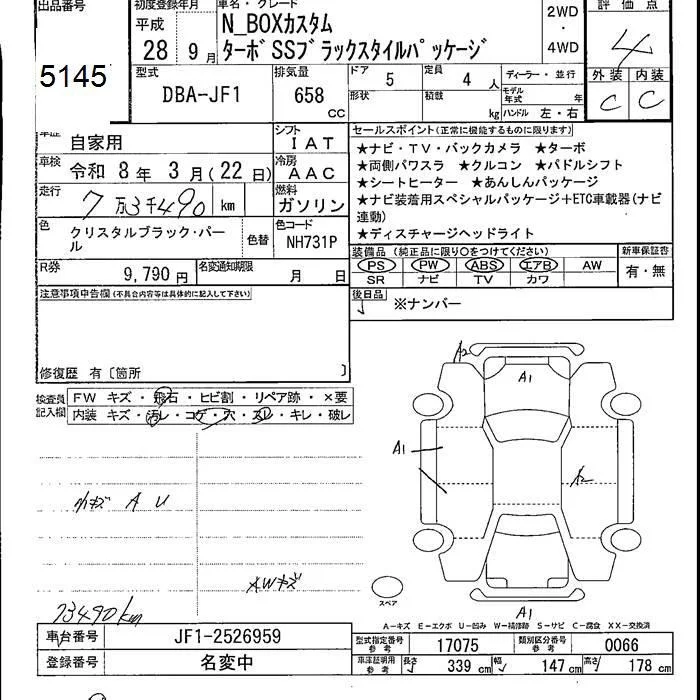 出品番号 初度登録年月 車名・グレード 評価点
5145
平成
28 9月
N_BOXカスタム
ターボSSブラックスタイルパッケージ
2WD
・
4WD
4
外装 内装
C C
型式 DBA-JF1
排気量 658 CC
ドア 5 定員 4人 ディーラー・並行
形状 積載 kg モデル年式 年
ハンドル 左・右
車歴 自家用 シフト IAT
車検 令和 8年 3月(22日) 冷房 AAC
走行 7万3千490 km 燃料 ガソリン
色 クリスタルブラック・パール 色替 色コード NH731P
R券 9,790円 名変通知期限 月 日
セールスポイント(正常に機能するものに限ります)
★ナビ・TV・バックカメラ ★ターボ
★両側パワスラ ★クルコン ★パドルシフト
★シートヒーター ★あんしんパッケージ
★ナビ装着用スペシャルパッケージ+ETC車載器(ナビ
連動)
★ディスチャージヘッドライト
装備品(純正品に限り〇をつけてください) 新車保証書
PS PW ABS エアB AW 有・無
SR ナビ TV カワ
後日品 ※ナンバー
注意事項申告欄(不具合内容等は具体的に記入して下さい)
修復歴 有〔箇所 〕
検査員 FW キズ・飛石・ヒビ割・リペア跡・×要
記入欄 内装 キズ・汚レ・コゲ・穴・スレ・キレ・破レ
A2
A1
A1
A2
小キズ A U
AWキズ
スペア
A1
73490km
A-キズ E-エクボ U-凹み W-補修跡 S-サビ C-腐食 XX-交換済
車台番号 JF1-2526959
登録番号 名変中
型式指定番号 参考 17075 類別区分番号 参考 0066
車庫証明用 参考 長さ 339 cm 幅 147 cm 高さ 178 cm